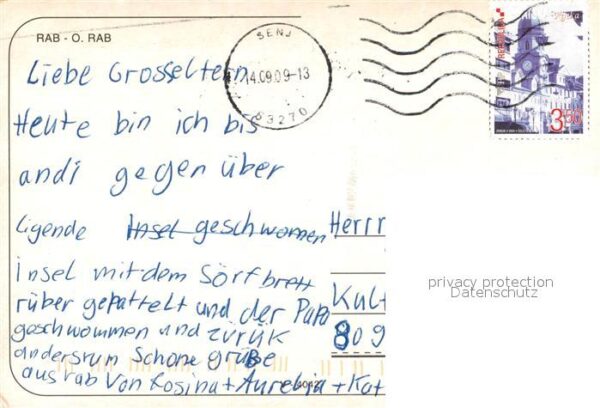 RAB - O. RAB
SENJ
14.09.09-13
53270
3,50
Liebe Grosseltern
Heute bin ich bis
andi gegenüber
ligende Insel geschwomen
insel mit dem Sörfbrett
rüber gepattelt und der Papa
geschwommen und zürük
andersrum Schöne grüße
aus rab Von Rosina + Aurelia + Kat
Herrn
Kult
809
privacy protection
Datenschutz